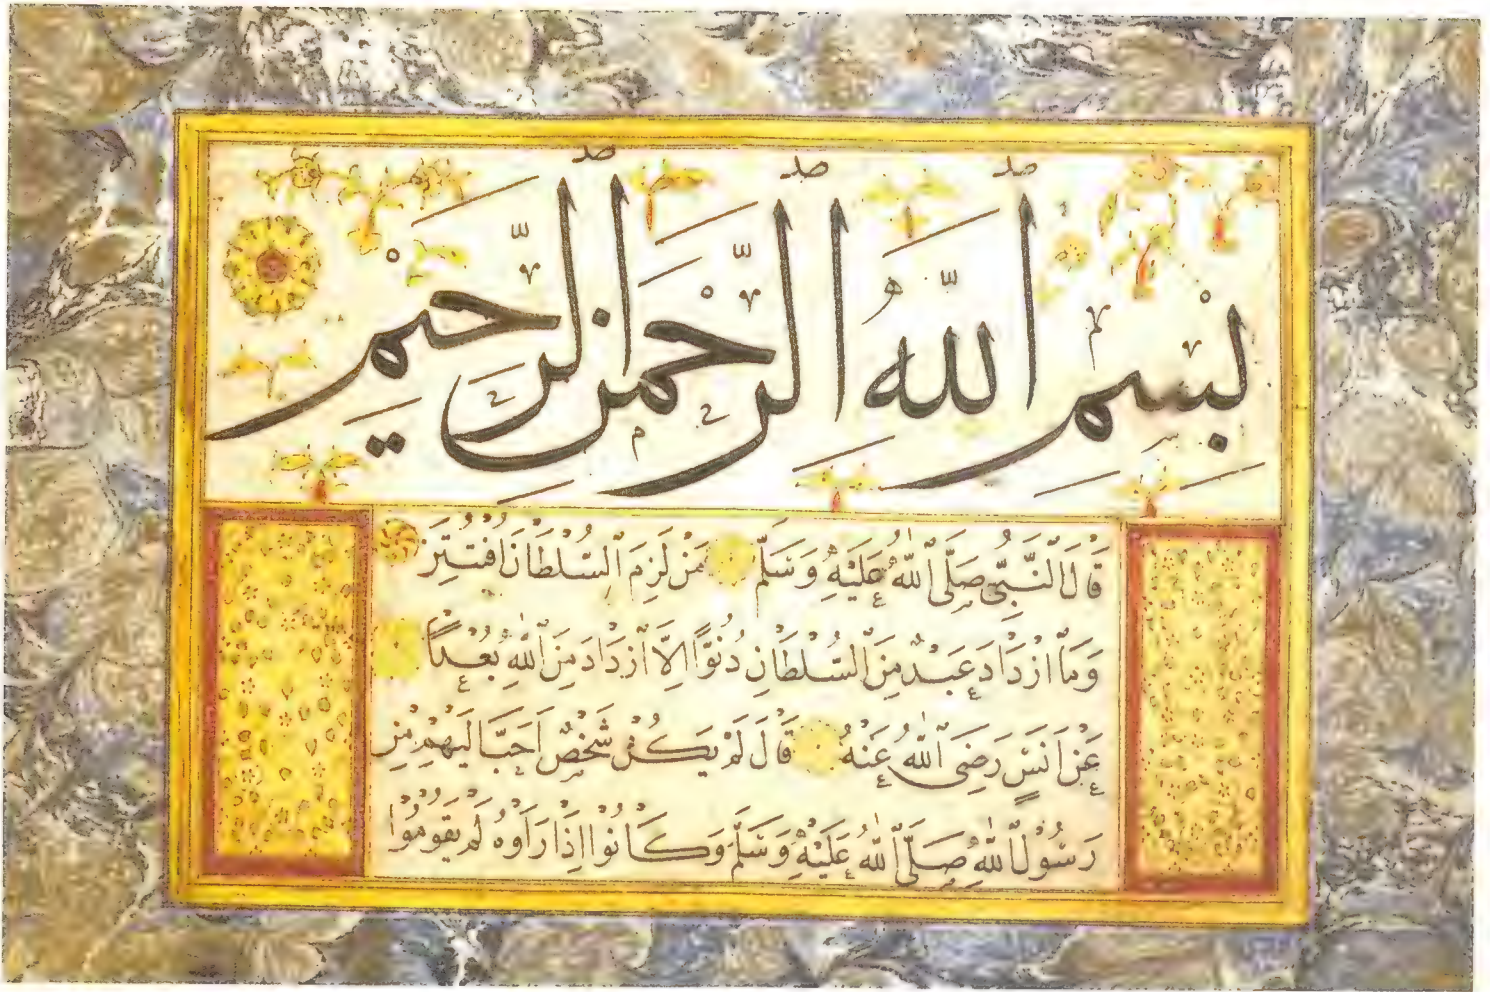 بِسْمِ اللَّهِ الرَّحْمَنِ الرَّحِيمِ
قَالَ النَّبِيُّ صَلَّى اللَّهُ عَلَيْهِ وَسَلَّمَ مَنْ لَزِمَ السُّلْطَانَ افْتُتِنَ
وَمَا ازْدَادَ عَبْدٌ مِنَ السُّلْطَانِ دُنُوًّا اِلَّا ازْدَادَ مِنَ اللَّهِ بُعْدًا
عَنْ اَنَسٍ رَضِىَ اللَّهُ عَنْهُ قَالَ لَمْ يَكُنْ شَخْصٌ اَحَبَّ اِلَيْهِمْ مِنْ
رَسُولِ اللَّهِ صَلَّى اللَّهُ عَلَيْهِ وَسَلَّمَ وَكَانُوا اِذَا رَاَوْهُ لَمْ يَقُومُوا